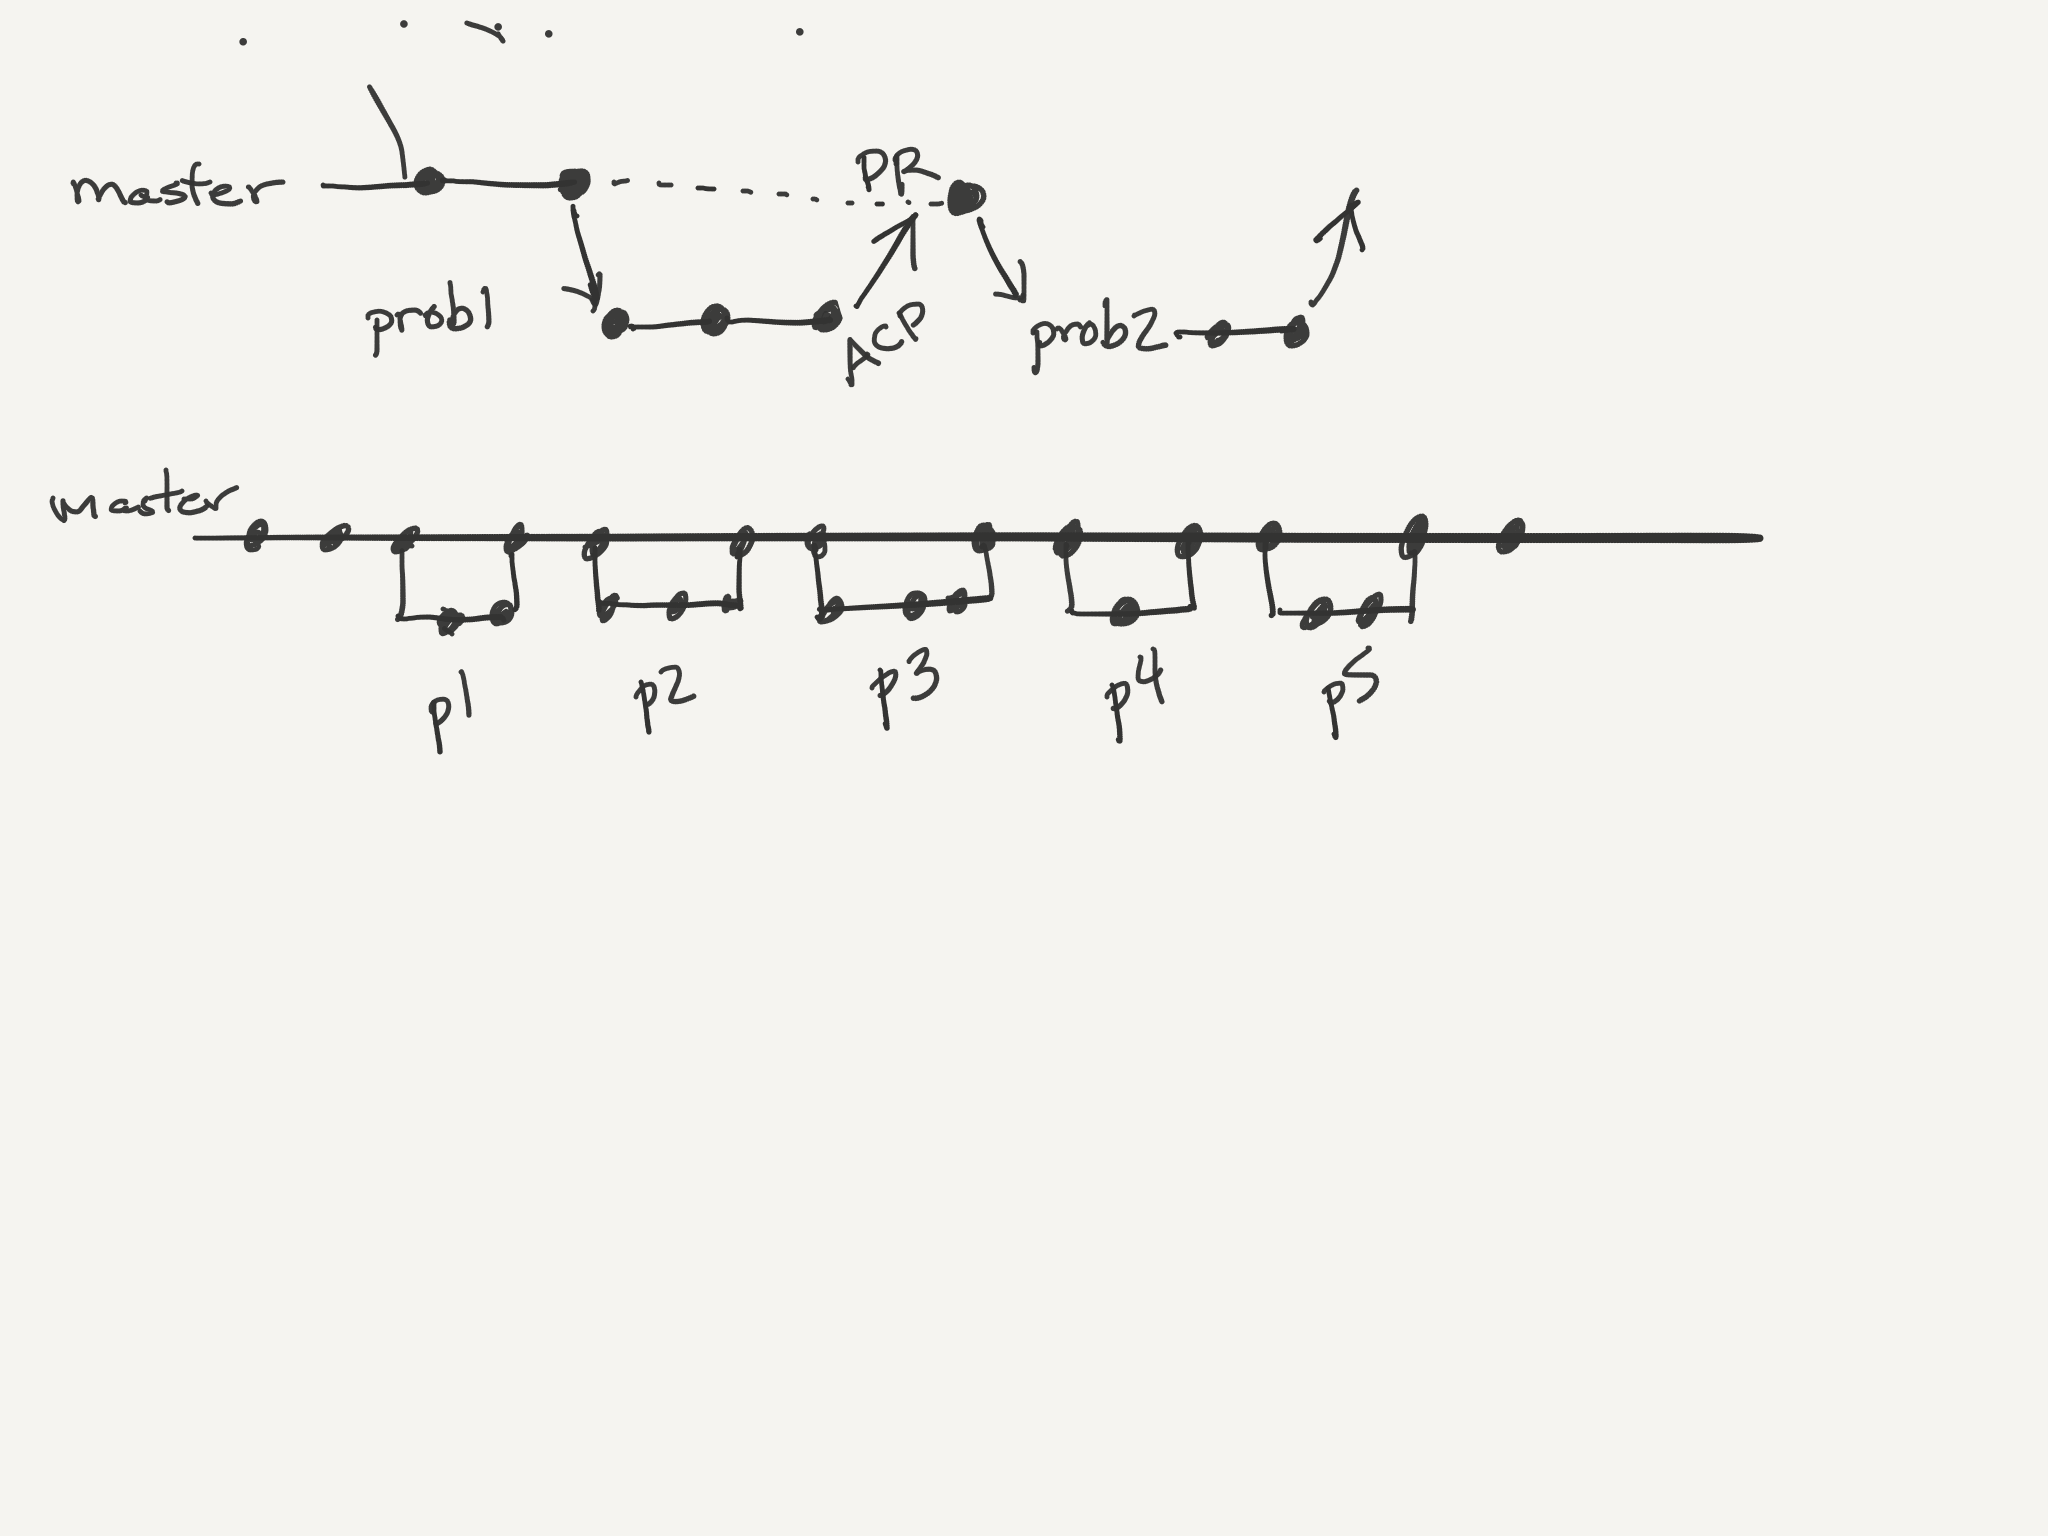 PR
master
prob1
ACP
prob2
master
p1 p2 p3 p4 p5